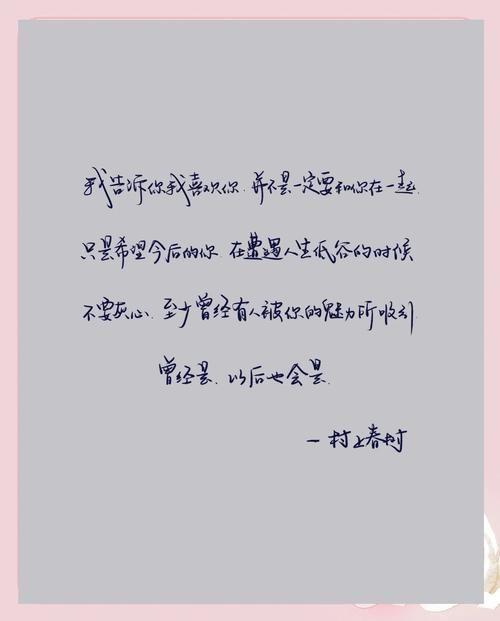 我告诉你我喜欢你.并不是一定要和你在一起.
只是希望今后的你.在遭遇人生低谷的时候
不要灰心.至少曾经有人被你的魅力所吸引.
曾经是.以后也会是.
—村上春树